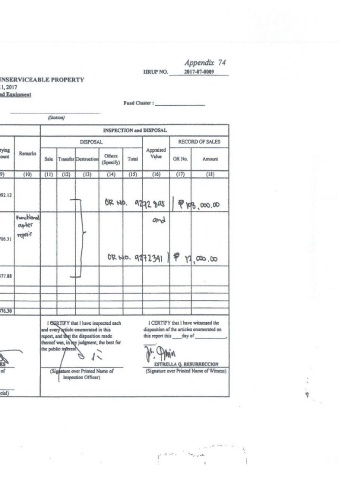 Appendix 74
IIRUP NO. 2017-07-0009
UNSERVICEABLE PROPERTY
1, 2017
nd Equipment
Fund Cluster :
(Station)
INSPECTION and DISPOSAL
DISPOSAL
RECORD OF SALES
Remarks
Sale
Transfer
Destruction
Others (Specify)
Total
Appraised Value
OR No.
Amount
(10)
(11)
(12)
(13)
(14)
(15)
(16)
(17)
(18)
OR No. 9272
,000.00
Functional
after
repair
and
OR No. 9272391 ₱ 12,000.00
I CERTIFY that I have inspected each
and every article enumerated in this
report, and that the disposition made
thereof was, in my judgment, the best for
the public interest.
(Signature over Printed Name of
Inspection Officer)
I CERTIFY that I have witnessed the
disposition of the articles enumerated on
this report this ____day of
ESTRELLA Q. RESURRECCION
(Signature over Printed Name of Witness)